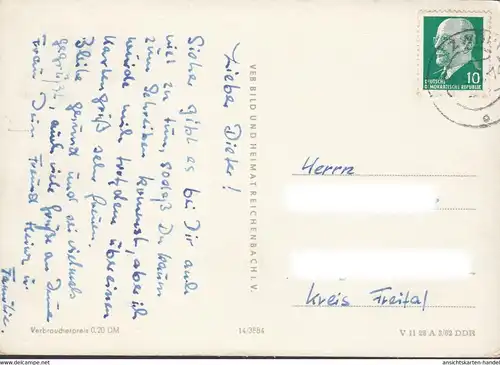 Lieber Dieter!
Sicher gibt es bei Dir auch
viel zu tun, sodaß Du kaum
zum Schreiben kommst, aber ich
würde mich trotzdem über einen
Kartengruß sehr freuen.
Bleibe gesund und sei vielmals
gegrüßt, auch viele Grüße an Deine
Frau, Dein Freund Heinz u.
Familie.
VEB BILD UND HEIMAT REICHENBACH I. V.
DEUTSCHE
DEMOKRATISCHE REPUBLIK
10
Herrn
Kreis Freital
Verbraucherpreis 0,20 DM
14/3584
V 11 28 A 3/62 DDR
ansichtskarten-handel.com